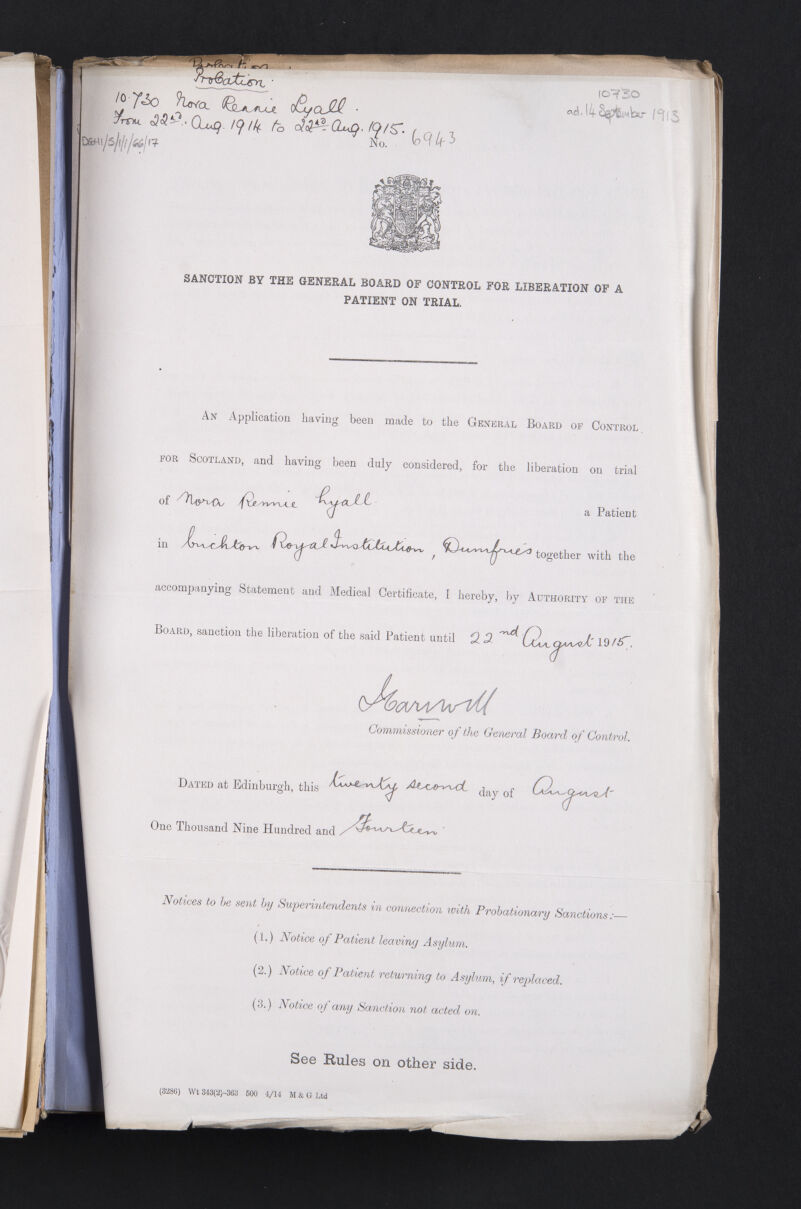 Probation
Probation.
10730
10.730 Nora Rennie Lyall.
ad. 14 September 1913
From 22nd. Aug. 1914 to 22nd Aug. 1915.
DGH1/5/1/1/66/17
No. 6943
SANCTION BY THE GENERAL BOARD OF CONTROL FOR LIBERATION OF A
PATIENT ON TRIAL.
AN Application having been made to the GENERAL BOARD OF CONTROL
FOR SCOTLAND, and having been duly considered, for the liberation on trial
of Nora Rennie Lyall a Patient
in Crichton Royal Institution, Dumfries together with the
accompanying Statement and Medical Certificate, I hereby, by AUTHORITY OF THE
BOARD, sanction the liberation of the said Patient until 22nd August 1915.
Commissioner of the General Board of Control.
DATED at Edinburgh, this twenty second day of August
One Thousand Nine Hundred and Fourteen
Notices to be sent by Superintendents in connection with Probationary Sanctions:—
(1.) Notice of Patient leaving Asylum.
(2.) Notice of Patient returning to Asylum, if replaced.
(3.) Notice of any Sanction not acted on.
See Rules on other side.
(3286) Wt 343(2)-363 500 4/14 M & G Ltd